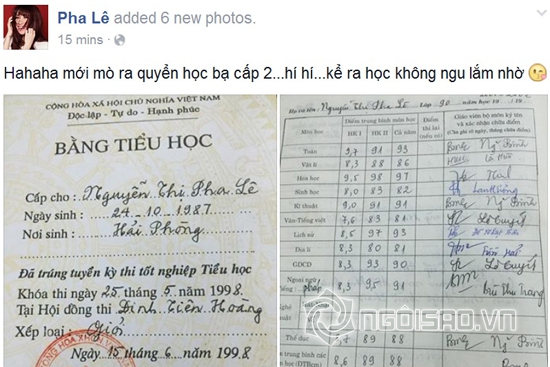 Pha Lê added 6 new photos.
15 mins ·
Hahaha mới mò ra quyển học bạ cấp 2...hí hí...kể ra học không ngu lắm nhờ
CỘNG HÒA XÃ HỘI CHỦ NGHĨA VIỆT NAM
Độc lập - Tự do - Hạnh phúc
BẰNG TIỂU HỌC
Cấp cho: Nguyễn Thị Pha Lê
Ngày sinh: 24-10-1987
Nơi sinh: Hải Phòng
Đã trúng tuyển kỳ thi tốt nghiệp Tiểu học
Khóa thi ngày 25 tháng 5 năm 1998
Tại Hội đồng thi Đinh Tiên Hoàng
Xếp loại: Giỏi
Ngày 15 tháng 6 năm 1998
Họ và tên Nguyễn Thị Pha Lê Lớp 9D năm học
Môn học
Điểm trung bình môn học
HK I HK II Cả năm
Điểm thi lại (nếu có)
Giáo viên bộ môn ký tên và xác nhận chữa điểm
Toán 9,7 91 93
Vật lí 8,3 88 86
Hóa học 9,5 98 97
Sinh học 8,0 83 82
Kĩ thuật 9,0 91 91
Văn-Tiếng việt 7,6 83 81 Lê Tuyết
Lịch sử 9,5 97 93
Địa lí 8,3 80 81
GDCD 8,3 93 90 Lê Tuyết
Ngoại ngữ pháp 8,3 95 91 Bùi Thu Trang
Thể dục 7 89 88
8,6 89 88
NGOISAO.VN